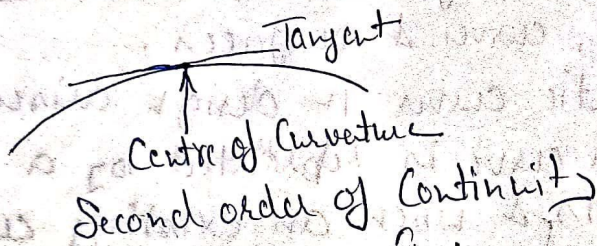 Tangent
Centre of Curvature
Second order of Continuity